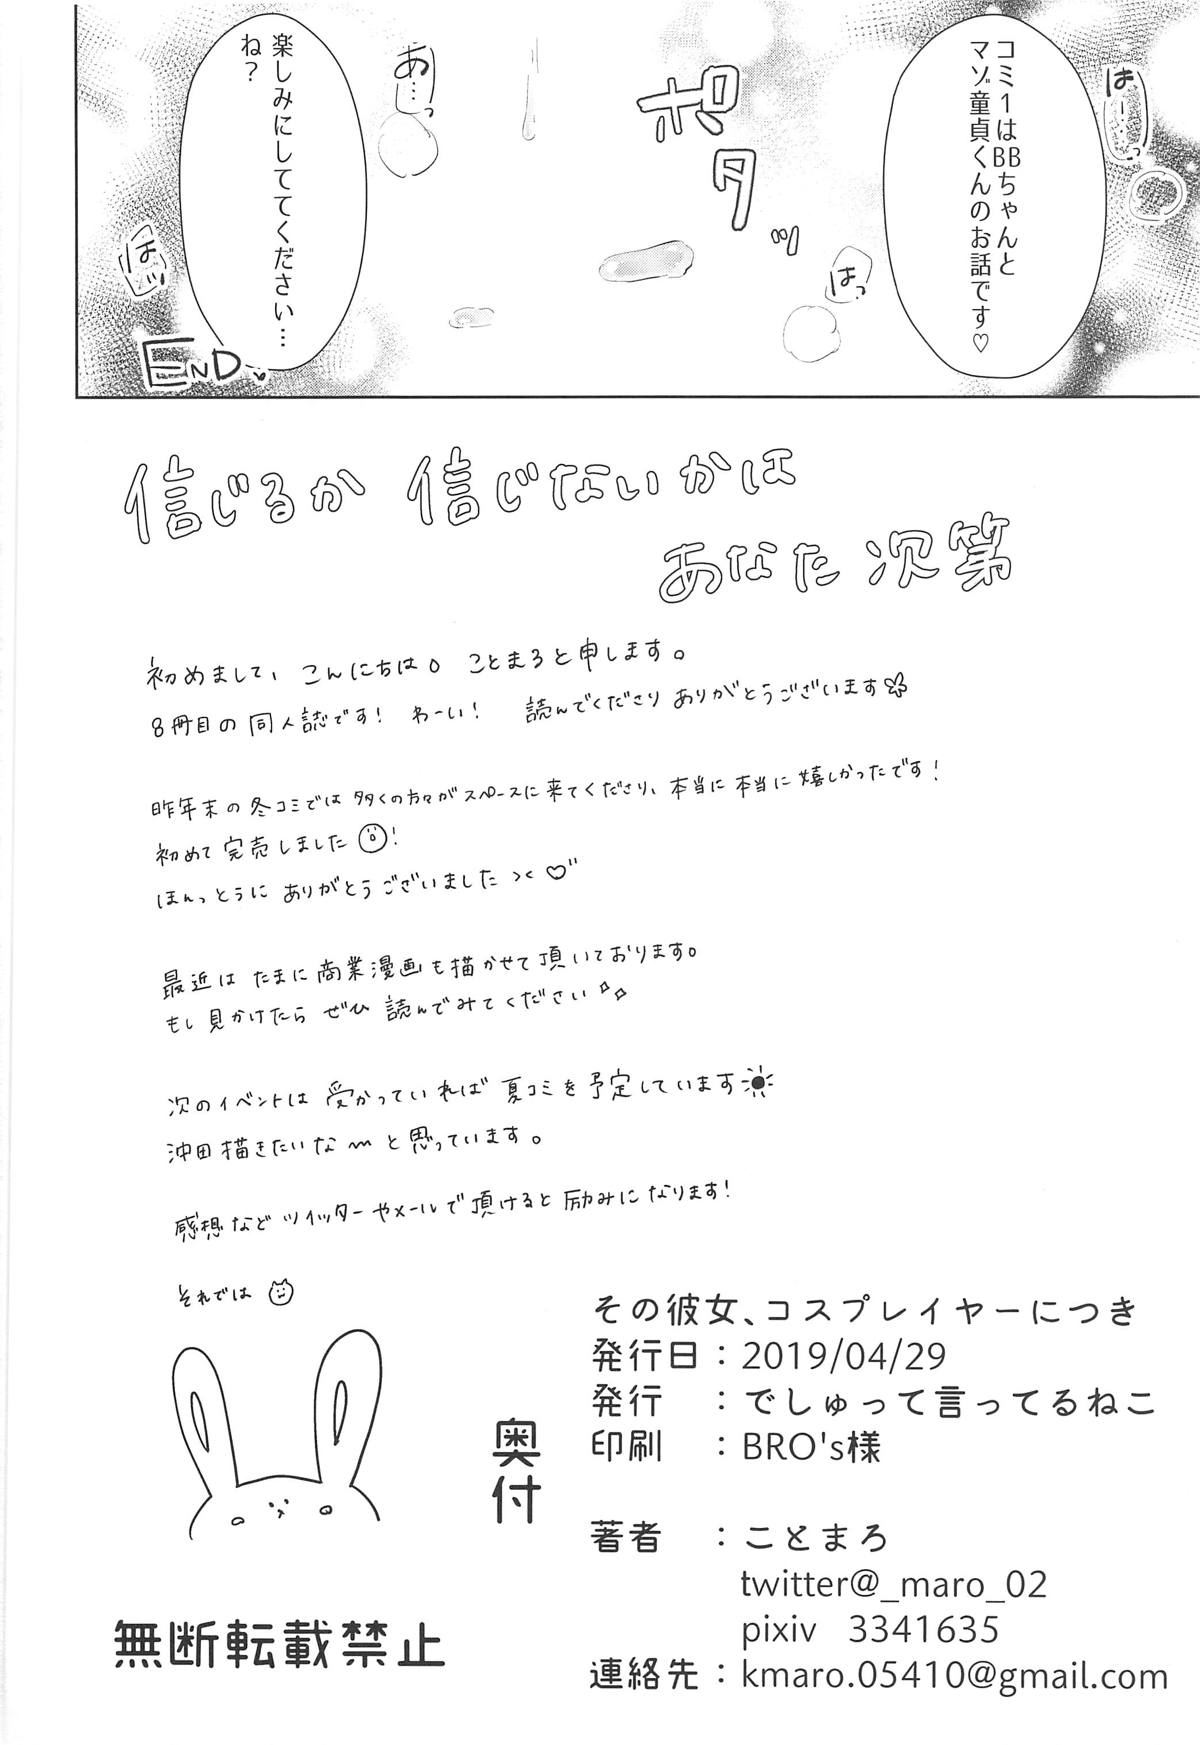 コミ1はBBちゃんと
マゾ童貞くんのお話です♡
はー…っ
ポタッ
はっ
あ…っ
楽しみにしててください…
ね?
はッ
END
信じるか 信じないかは
あなた次第
初めまして、こんにちは。ことまろと申します。
8冊目の同人誌です! わーい! 読んでくださりありがとうございます
昨年末の冬コミでは多くの方々がスペースに来てくださり、本当に本当に嬉しかったです!
初めて完売しました!
ほんっとうにありがとうございました><♡"
最近はたまに商業漫画も描かせて頂いております。
もし見かけたらぜひ読んでみてください
次のイベントは受かっていれば夏コミを予定しています
沖田描きたいな〜と思っています。
感想などツイッターやメールで頂けると励みになります!
それでは
奥付
その彼女、コスプレイヤーにつき
発行日:2019/04/29
発行 :でしゅって言ってるねこ
印刷 :BRO's様
著者 :ことまろ
twitter@_maro_02
pixiv 3341635
連絡先:kmaro.05410@gmail.com
無断転載禁止